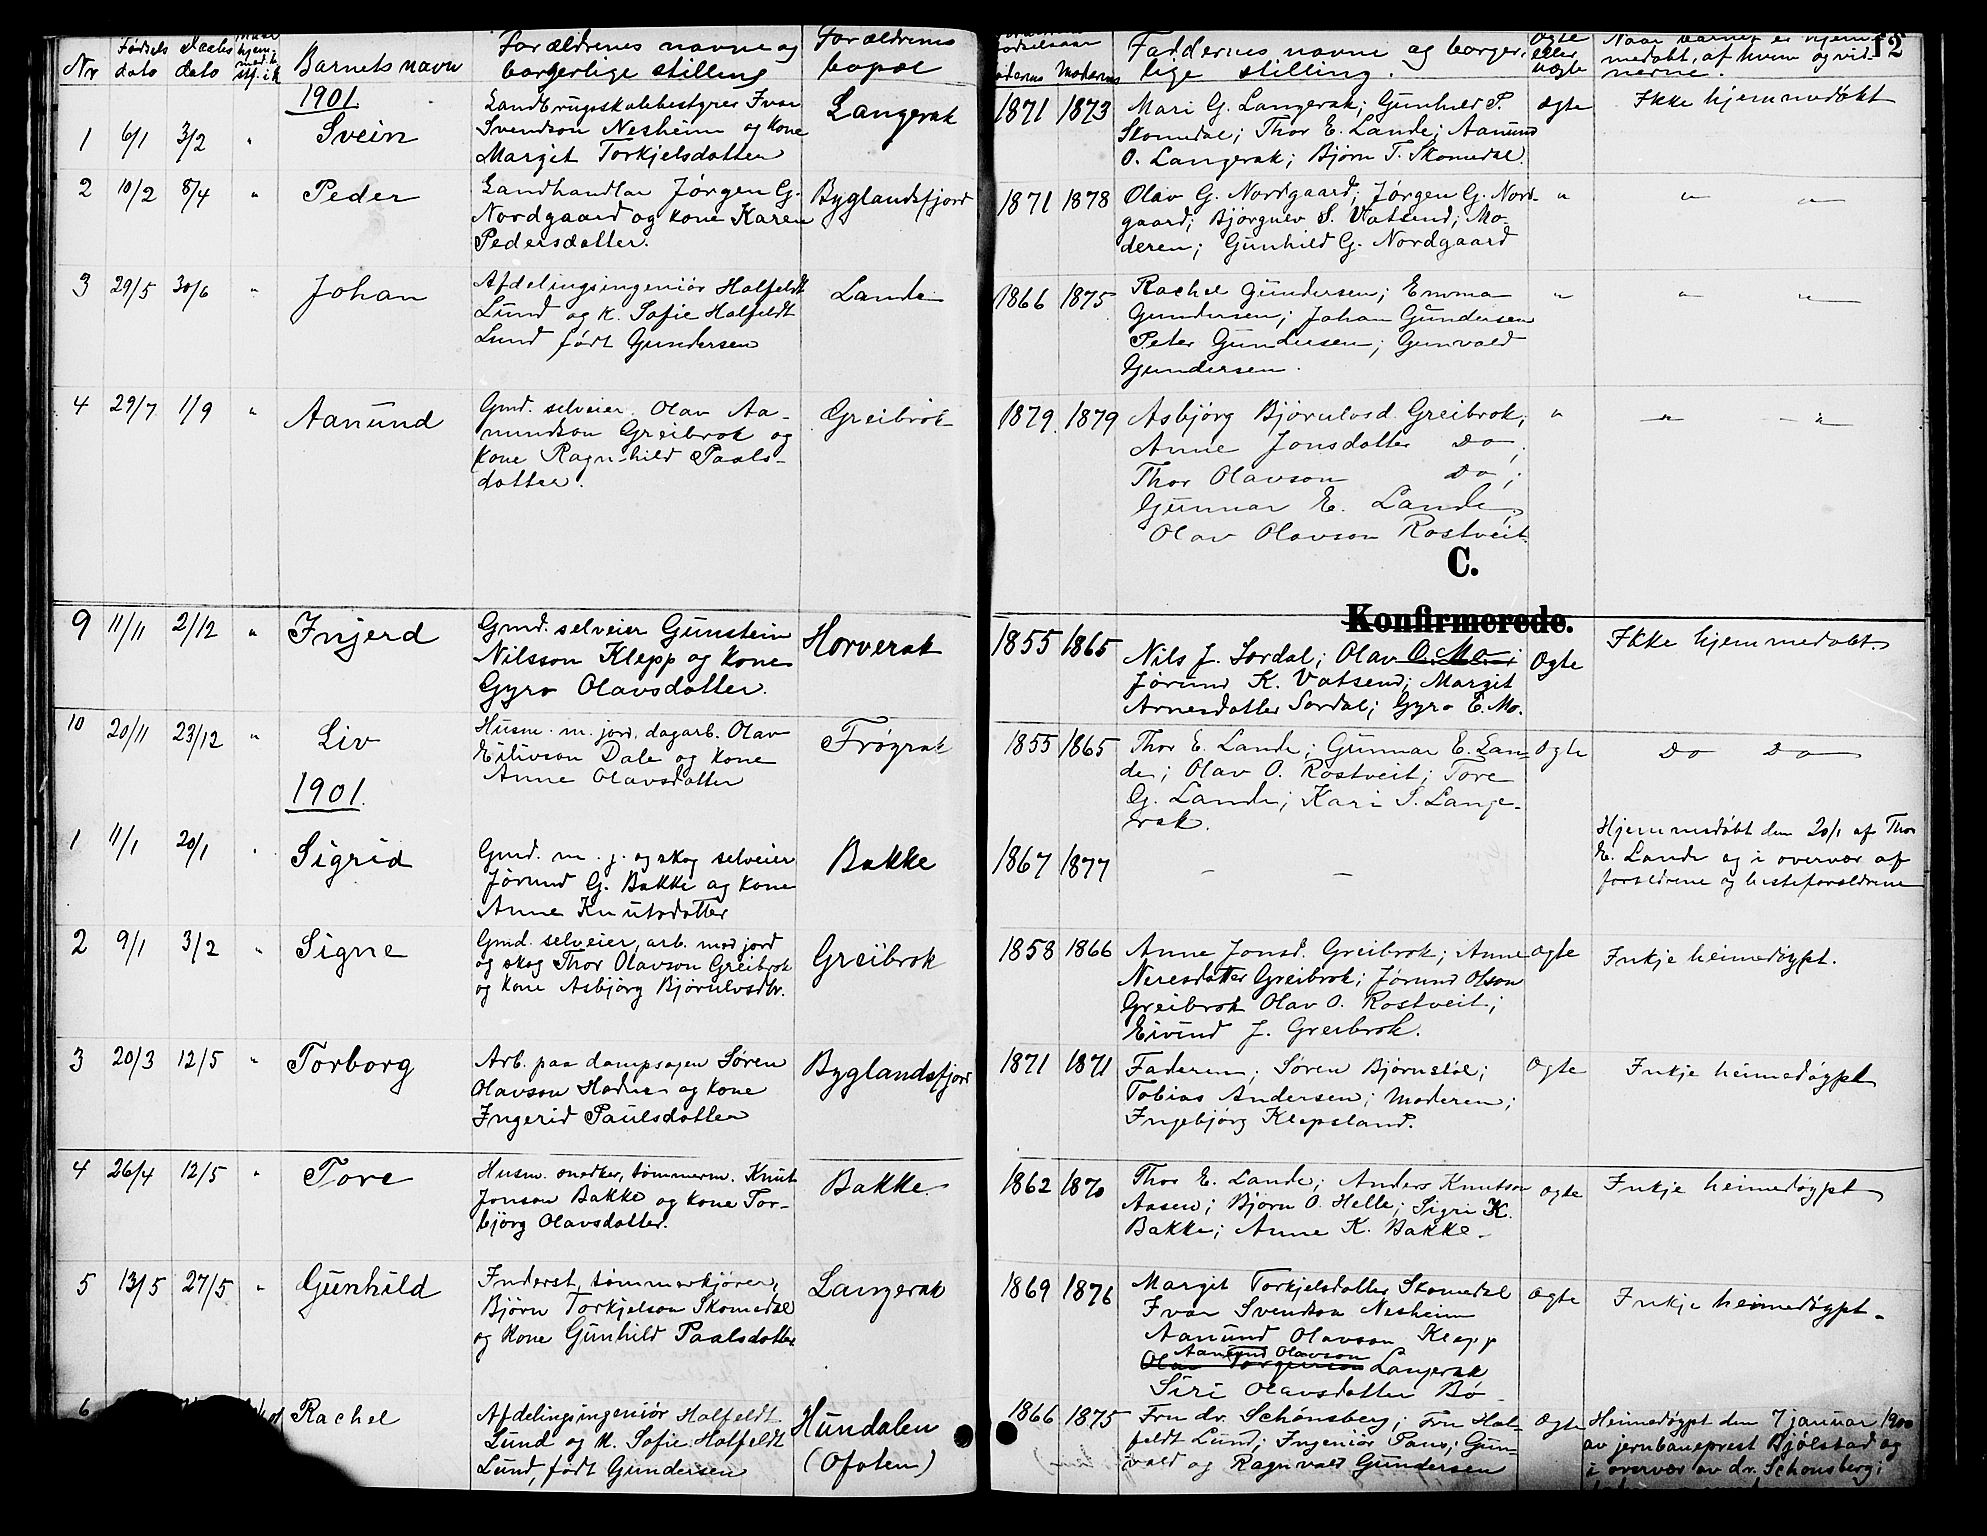 Nr Fødsels dato Daabs dato Barnets navn Forældrenes navne og borgerlige stilling Forældrenes bopæl Moderens Faddernes navne og borgerlige stilling. Ægte eller uægte Naar barnet er hjemmedøbt, af hvem og vidnerne. 12
1901
1 6/1 3/2 " Svein
Landbrugsskolebestyrer Ivar
Svendson Nesheim og kone
Margit Torkjelsdotter
Langerak
1871 1873
Mari G. Langerak; Gunhild P.
Skomedal; Thor E. Lande; Aanund
O. Langerak; Bjørn T. Skomedal.
ægte Ikke hjemmedøbt
2 10/2 8/4 " Peder
Landhandlar Jørgen G.
Nordgaard og kone Karen
Pedersdatter.
Byglandsfjord
1871 1878
Olav G. Nordgaard; Jørgen G. Nord-
gaard; Bjørgulv S. Vatsend; Mo-
deren; Gunhild G. Nordgaard
" " "
3 29/5 30/6 " Johan
Afdelingsingeniør Halfeldt
Lund og K. Sofie Halfeldt
Lund født Gundersen
Lande
1866 1875
Rachel Gundersen; Emma
Gundersen; Johan Gundersen
Peter Gundersen; Gunvald
Gundersen.
" " "
4 29/7 1/9 " Aanund
Gmd. selveier Olav Aa-
nundson Greibrok og
kone Ragnhild Paals-
dotter.
Greibrok
1879 1879
Asbjörg Bjørulvsd. Greibrok;
Anne Jonsdotter Do;
Thor Olavson Do;
Gunnar E. Lande;
Olav Olavson Rostveit
" " "
C.
Konfirmerede.
9 11/11 2/12 " Injerd
Gmd. selveier Gunstein
Nilsson Klepp og kone
Gyro Olavsdotter.
Horverak
1855 1865
Nils J. Sordal; Olav O. Mo;
Jørund K. Vatsend; Margit
Arnesdotter Sordal; Gyro E. Mo.
Ogte Ikke hjemmedøbt.
10 20/11 23/12 " Liv
Husm. m. jord, dagarb. Olav
Eilivson Dale og kone
Anne Olavsdotter
Frøyrak
1855 1865
Thor E. Lande; Gunnar E. Lan-
de; Olav O. Rostveit; Tore
G. Lande; Kari S. Lange-
rak.
Ogte Do Do
1901.
1 11/1 20/1 " Sigrid
Gmd. m. j. og skog selveier
Jørund G. Bakke og kone
Anne Knutsdotter
Bakke
1867 1877 – –
Hjemmedøbt den 20/1 af Thor
E. Lande og i overvær af
foreldrene og besteforeldrene
2 9/1 3/2 " Signe
Gmd. selveier, arb. med jord
og skog Thor Olavson Greibrok
og kone Asbjörg Bjørulvsdtr.
Greibrok
1858 1866
Anne Jonsd. Greibrok; Anne
Neresdotter Greibrok; Jørund Olson
Greibrok Olav O. Rostveit;
Eivind J. Greibrok.
Ogte Inkje heimedøypt.
3 20/3 12/5 " Torborg
Arb. paa dampsagen Søren
Olavson Hodne og kone
Ingerid Paulsdotter
Byglandsfjord
1871 1871
Faderen; Søren Bjørnstøl;
Tobias Andersen; Moderen;
Ingebjörg Klepsland.
Ogte Inkje heimedøypt
4 26/4 12/5 " Tore
Husm. snedker, tømmerm. Knut
Jonson Bakke og kone Tor-
björg Olavsdotter.
Bakke.
1862 1870
Thor E. Lande; Anders Knutson
Aasen; Bjørn O. Helle; Sigri K.
Bakke; Anne K. Bakke.
Ogte Inkje heimedøypt
5 13/5 27/5 " Gunhild
Inderst, tømmerkjører,
Bjørn Torkjelson Skomedal
og kone Gunhild Paalsdotter
Langerak
1869 1876
Margit Torkjelsdotter Skomedal
Ivar Svendson Nesheim
Aanund Olavson Klepp
Aanund Olavson
Olav Torgeirson Langerak
Siri Olavsdotter Bø
Ogte Inkje heimedøypt.
6 Rachel
Afdelingsingeniør Halfeldt
Lund og K. Sofie Halfeldt
Lund, født Gundersen
Hundalen
(Ofoten)
1866 1875
Fru dr. Schönsberg; Fru Hal-
feldt Lund; Ingeniør Paus; Gun-
vald og Ragnvald Gundersen
Ogte
Heimedøypt den 7 januar 1900
av jernbaneprest Bjølstad og
i overvær av dr. Schonsberg;